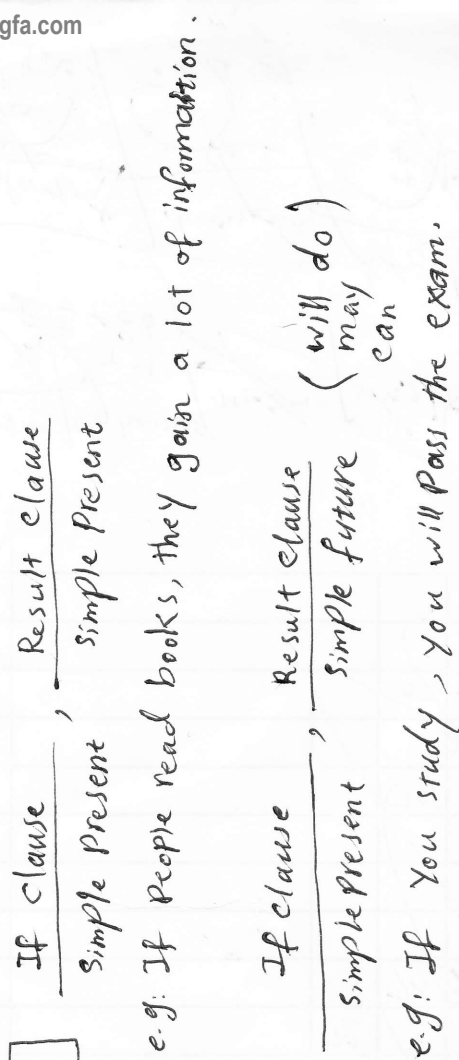 gfa.com
If clause , Result clause
Simple Present Simple Present
e.g: If people read books, they gain a lot of information.
If clause , Result clause
Simple Present Simple future ( will do )
may
can
e.g: If you study, you will pass the exam.